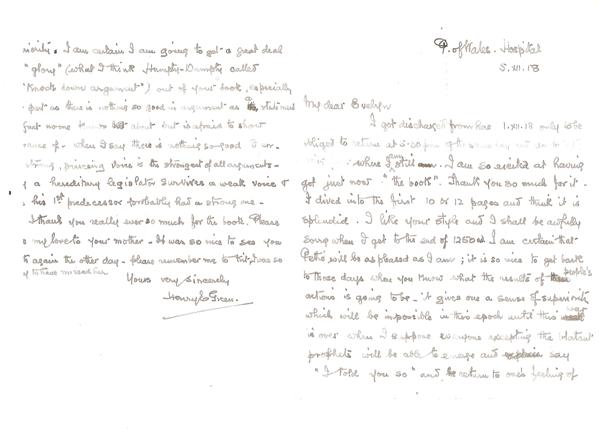 P. of Wales. Hospital
5. XII. 18
My dear Evelyn
I got discharged from here 1.XII.18 only to be
obliged to return at 5.30 pm of the same day
where I still am. I am so excited at having
got just now "the book". Thank you so much for it.
I dived into the first 10 or 12 pages and think it is
splendid. I like your style and I shall be awfully
sorry when I get to the end of 1250 ad. I am certain that
will be as pleased as I am; it is so nice to get back
to those days when you know what the results of people's
actions is going to be. it gives one a sense of superiority
which will be impossible in this epoch until this war
is over when I suppose everyone excepting the blatant
prophets will be able to emerge and say
"I told you so" and return to one's feeling of
iority. I am certain I am going to get a great deal
"glory" (what I think Humpty-Dumpty called
"Knock down argument") out of your book, especially
part as there is nothing so good in argument as a
fact no one knows about but is afraid to show
rance of - when I say there is nothing so good I
strong, voice is the strongest of all arguments -
a hereditary legislator survives a weak voice
his 1st predecessor probably had a strong one -
I thank you really ever so much for the book. Please
my love to your mother - It was so nice to see you
again the other day - please remember me to
Yours very sincerely
Henry C Green.